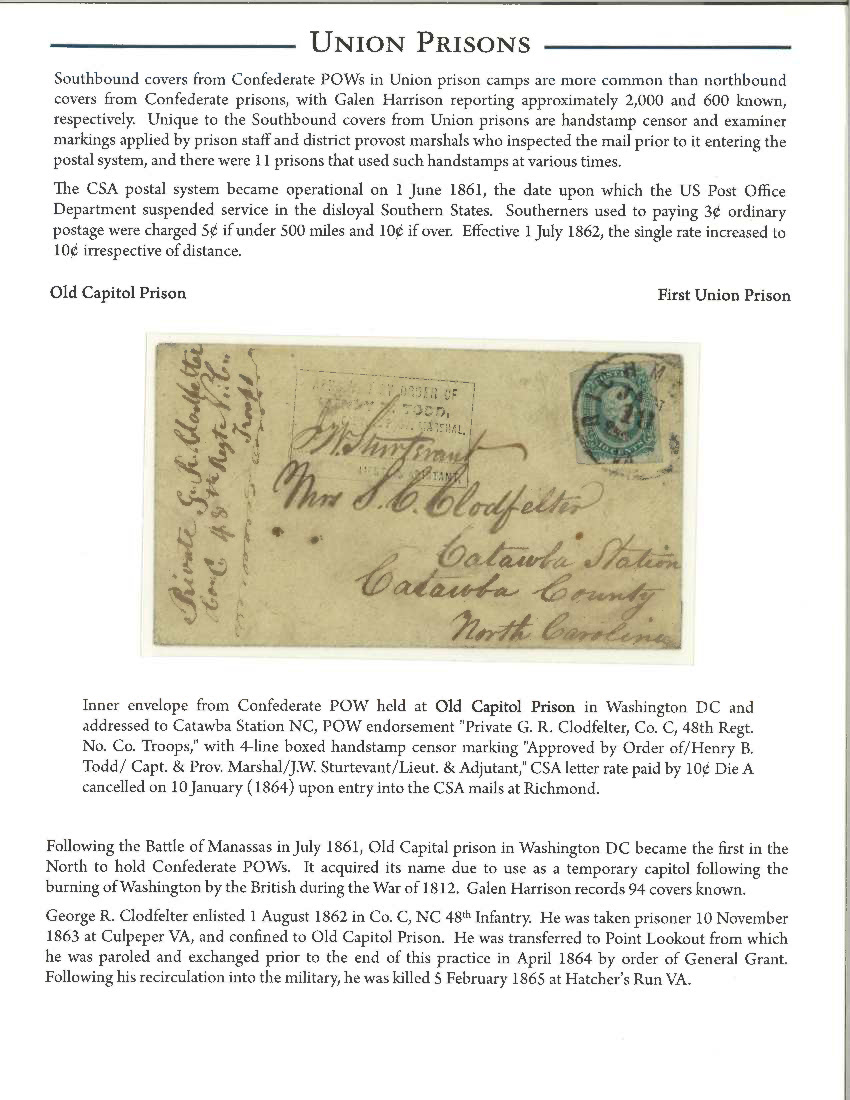 UNION PRISONS
Southbound covers from Confederate POWs in Union prison camps are more common than northbound
covers from Confederate prisons, with Galen Harrison reporting approximately 2,000 and 600 known,
respectively. Unique to the Southbound covers from Union prisons are handstamp censor and examiner
markings applied by prison staff and district provost marshals who inspected the mail prior to it entering the
postal system, and there were 11 prisons that used such handstamps at various times.
The CSA postal system became operational on 1 June 1861, the date upon which the US Post Office
Department suspended service in the disloyal Southern States. Southerners used to paying 3¢ ordinary
postage were charged 5¢ if under 500 miles and 10¢ if over. Effective 1 July 1862, the single rate increased to
10¢ irrespective of distance.
Old Capitol Prison
First Union Prison
Private G. R. Clodfelter
Co. C 48th Regt N. C.
Troops
BY ORDER OF
TODD,
MARSHAL.
J. W. Sturtevant
RICHM
VA
Mrs S. C. Clodfelter
Catawba Station
Catawba County
North Carolina
Inner envelope from Confederate POW held at Old Capitol Prison in Washington DC and
addressed to Catawba Station NC, POW endorsement "Private G. R. Clodfelter, Co. C, 48th Regt.
No. Co. Troops," with 4-line boxed handstamp censor marking "Approved by Order of/Henry B.
Todd/ Capt. & Prov. Marshal/J.W. Sturtevant/Lieut. & Adjutant," CSA letter rate paid by 10¢ Die A
cancelled on 10 January (1864) upon entry into the CSA mails at Richmond.
Following the Battle of Manassas in July 1861, Old Capital prison in Washington DC became the first in the
North to hold Confederate POWs. It acquired its name due to use as a temporary capitol following the
burning of Washington by the British during the War of 1812. Galen Harrison records 94 covers known.
George R. Clodfelter enlisted 1 August 1862 in Co. C, NC 48th Infantry. He was taken prisoner 10 November
1863 at Culpeper VA, and confined to Old Capitol Prison. He was transferred to Point Lookout from which
he was paroled and exchanged prior to the end of this practice in April 1864 by order of General Grant.
Following his recirculation into the military, he was killed 5 February 1865 at Hatcher's Run VA.